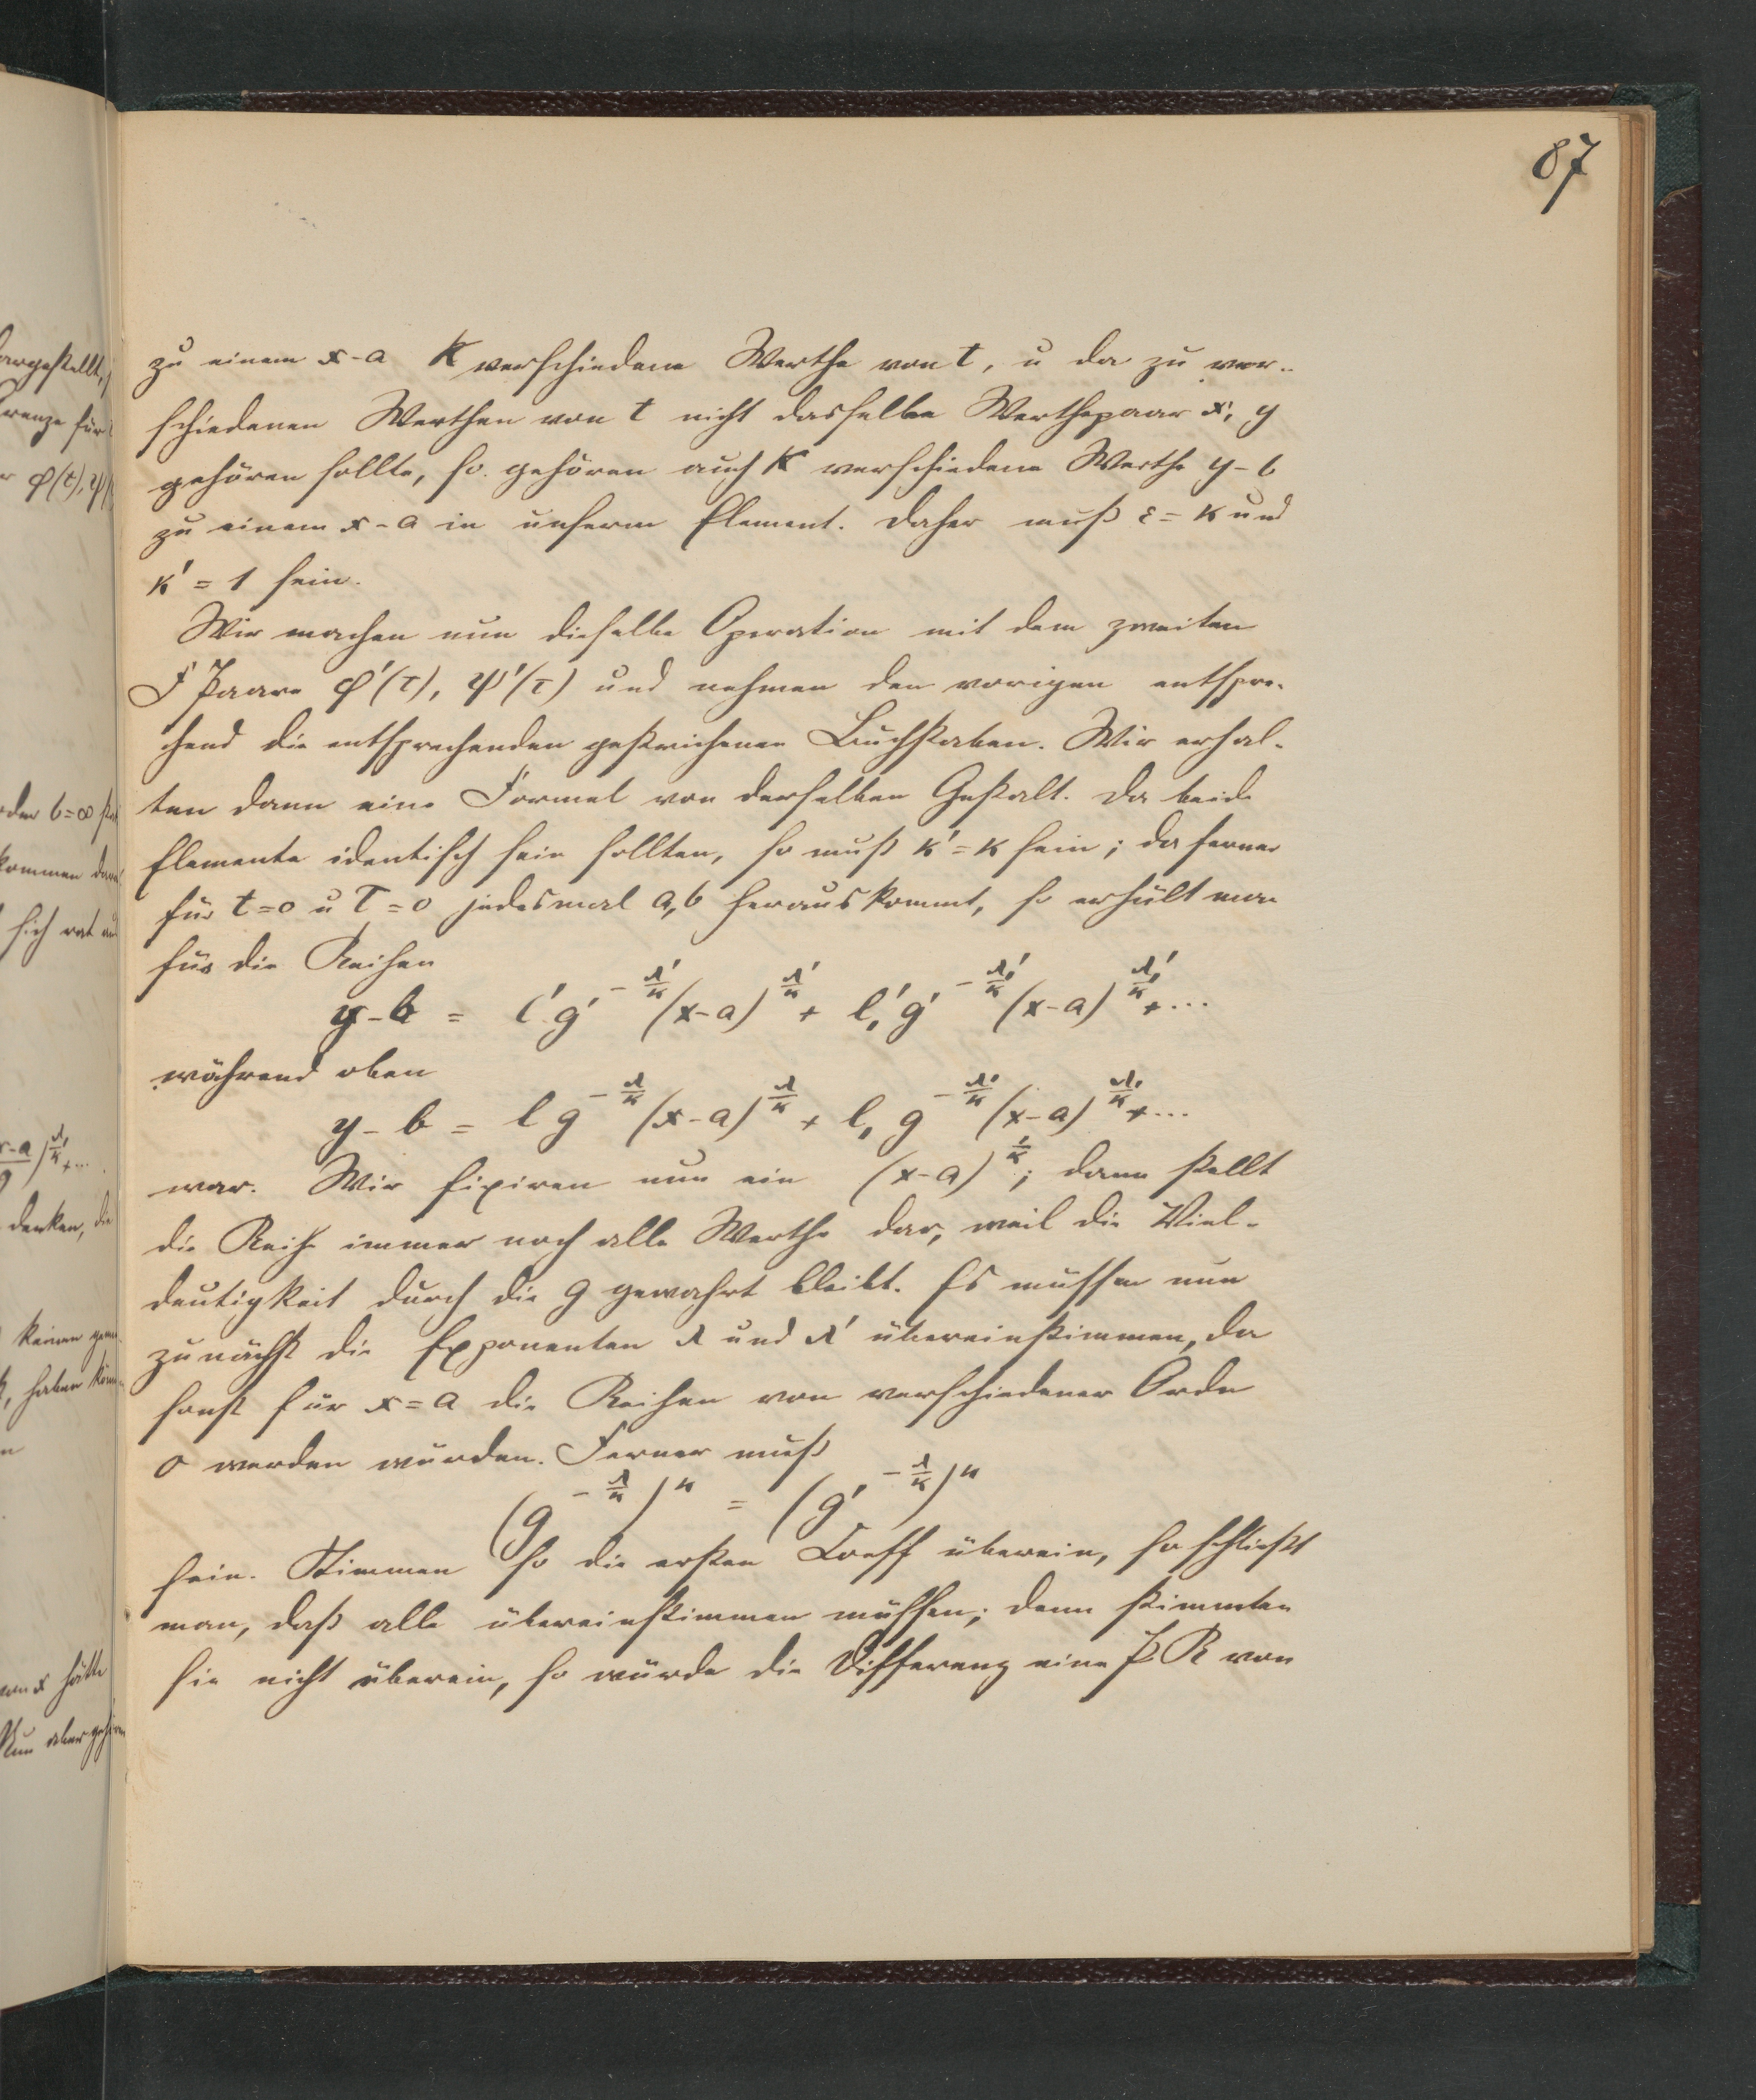 87
zu einem x-a κ verschiedene Werthe von t, u da zu ver-
schiedenen Werthen von t nicht dasselbe Werthepaar x, y
gehören sollte, so gehören auch κ verschiedene Werthe y-b
zu einem x-a in unserm Element. Daher muß ε = κ und
κ' = 1 sein.
Wir machen nun dieselbe Operation mit dem zweiten
Paare φ'(τ), ψ'(τ) und nehmen den vorigen entspre-
chend die entsprechenden gestrichenen Buchstaben. Wir erhal-
ten dann eine Formel von derselben Gestalt. Da beide
Elemente identisch sein sollten, so muß κ' = κ sein; da ferner
für t=0 u τ=0 jedesmal a, b herauskommt, so erhält man
für die Reihen
y-b = l' g'^{-λ'/κ} (x-a)^{λ'/κ} + l₁' g'^{-λ₁'/κ} (x-a)^{λ₁'/κ} + ...
während oben
y-b = l g^{-λ/κ} (x-a)^{λ/κ} + l₁ g^{-λ₁/κ} (x-a)^{λ₁/κ} + ...
war. Wir fixiren nun ein (x-a)^{1/κ}; dann stellt
die Reihe immer noch alle Werthe dar, weil die Viel-
deutigkeit durch die g gewahrt bleibt. Es müssen nun
zunächst die Exponenten λ und λ' übereinstimmen, da
sonst für x=a die Reihen von verschiedener Ordn
0 werden würden. Ferner muß
(g^{-λ/κ})^κ = (g'^{-λ/κ})^κ
sein. Stimmen so die ersten Coeff überein, so schließt
man, daß alle übereinstimmen müssen; denn stimmten
sie nicht überein, so würde die Differenz eine P R von